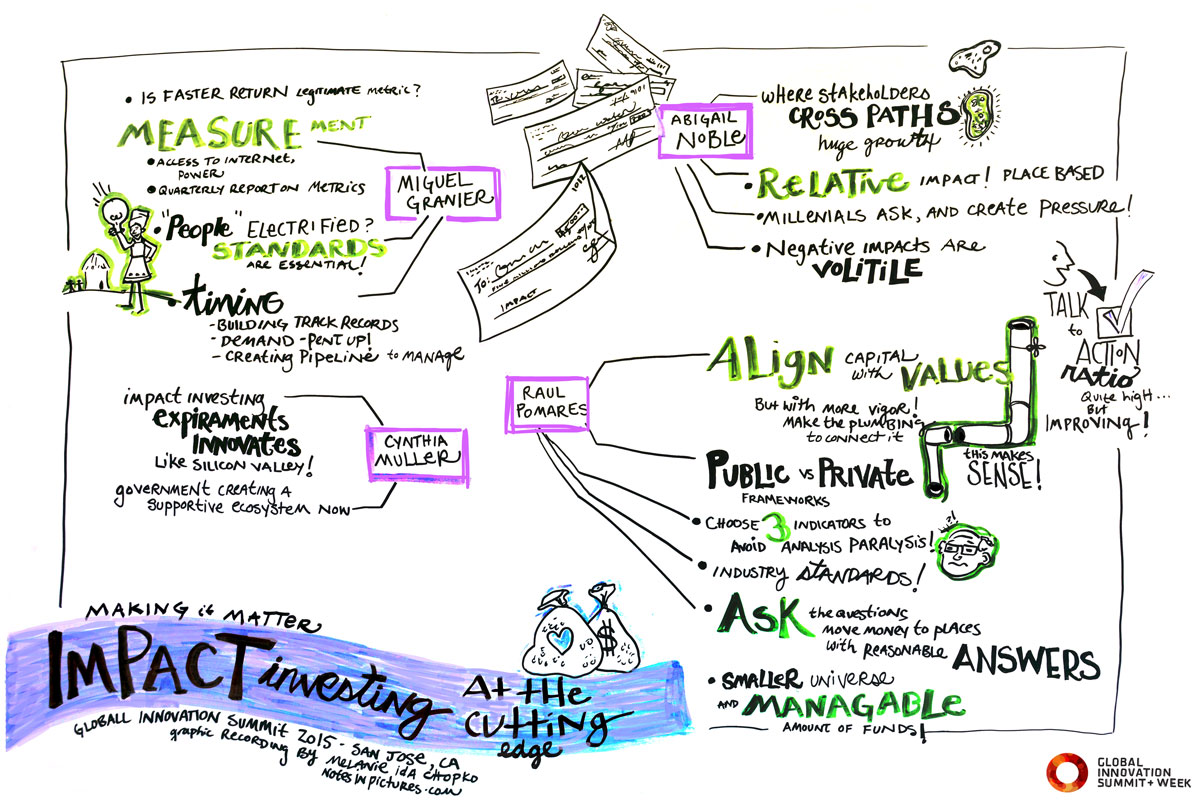 • IS FASTER RETURN LEGITIMATE METRIC?
MEASUREMENT
• ACCESS TO INTERNET,
POWER
• QUARTERLY REPORT ON METRICS
MIGUEL
GRANIER
• "People" ELECTRIFIED?
STANDARDS
ARE ESSENTIAL!
• timing
- BUILDING TRACK RECORDS
- DEMAND - PENT UP!
- CREATING PIPELINE to MANAGE
IMPACT INVESTING
EXPIRAMENTS
INNOVATES
LIKE SILICON VALLEY!
GOVERNMENT CREATING A
SUPPORTIVE ECOSYSTEM NOW
CYNTHIA
MULLER
TO:
IMPACT
ABIGAIL
NOBLE
WHERE STAKEHOLDERS
CROSS PATHS
huge growth
• RELATIVE IMPACT! PLACE BASED
• MILLENIALS ASK, AND CREATE PRESSURE!
• NEGATIVE IMPACTS ARE
VOLITILE
TALK
to
ACTION
RATIO
QUITE HIGH...
BUT
IMPROVING!
RAUL
POMARES
ALIGN CAPITAL
with VALUES
BUT WITH MORE VIGOR!
MAKE THE PLUMBING
TO CONNECT IT
THIS MAKES
SENSE!
PUBLIC vs PRIVATE
FRAMEWORKS
• CHOOSE 3 INDICATORS to
AVOID ANALYSIS PARALYSIS!
?!
• INDUSTRY STANDARDS!
• ASK the QUESTIONS
MOVE MONEY TO PLACES
WITH REASONABLE ANSWERS
• SMALLER UNIVERSE
AND MANAGABLE
AMOUNT OF FUNDS!
MAKING it MATTER
IMPACT investing
AT THE
CUTTING
edge
$
GLOBALL INNOVATION SUMMIT 2015 - SAN JOSE, CA
graphic RECORDING BY MELANIE IDA CHOPKO
NOTESINPICTURES.COM
GLOBAL
INNOVATION
SUMMIT + WEEK